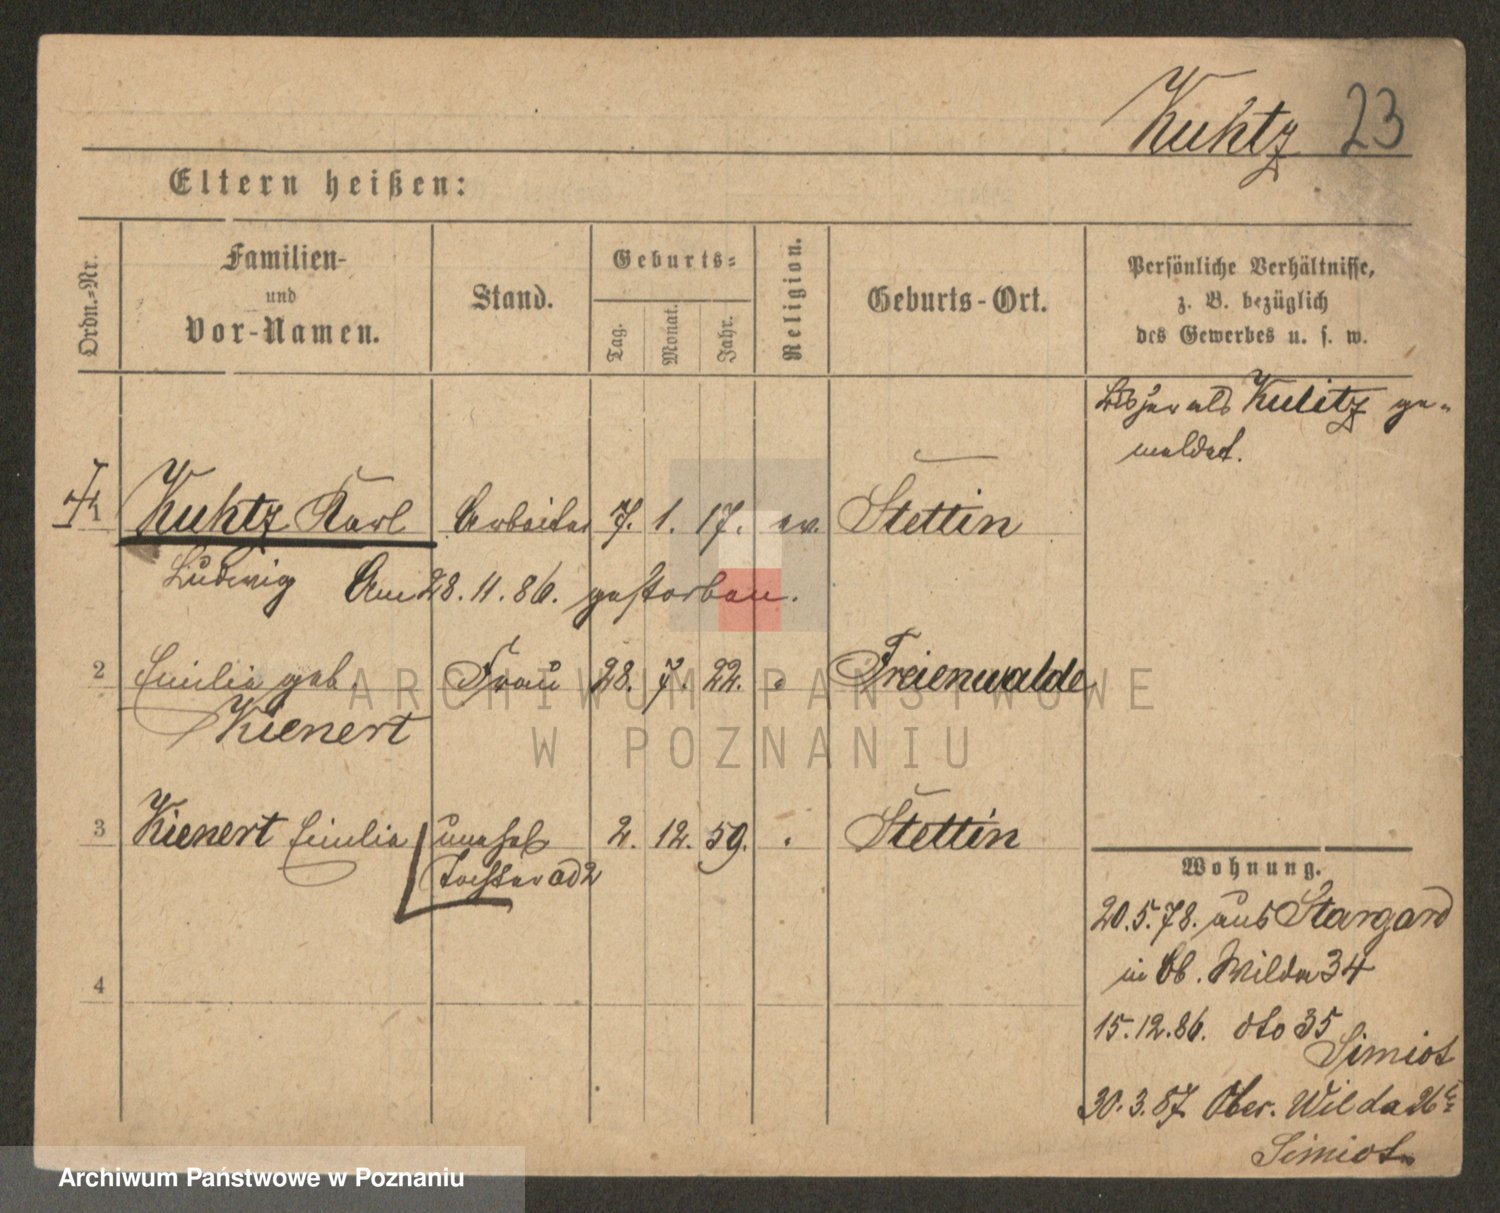 Kuhtz 23
Eltern heißen:
Ordn.=Nr.
Familien-
und
Vor-Namen.
Stand.
Geburts=
Tag.
Monat.
Jahr.
Religion.
Geburts-Ort.
Persönliche Verhältnisse,
z. B. bezüglich
des Gewerbes u. s. w.
Bisher als Kulitz ge-
meldet.
1 Kuhtz Karl Arbeiter 7. 1. 17. ev. Stettin
Ludwig Am 28. 11. 86. gestorben.
2 Emilie geb. Frau 28. 7. 22. Freienwalde
Kienert
3 Kienert Emilie unehel 2. 12. 59. Stettin
Tochter ad 2
4
Wohnung.
20.5.78. aus Stargard
in Ob. Wilda 34
15.12.86. dto 35
Simiot
30.3.87. Ober. Wilda 26
Simiot
ARCHIWUM PAŃSTWOWE
W POZNANIU
Archiwum Państwowe w Poznaniu